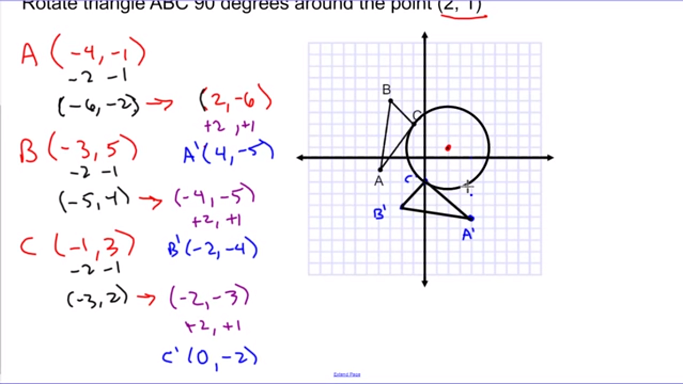 Rotate triangle ABC 90 degrees around the point (2, 1)
A (-4, -1)
-2 -1
(-6, -2) → (2, -6)
+2, +1
A'(4, -5)
B (-3, 5)
-2 -1
(-5, 4) → (-4, -5)
+2, +1
B'(-2, -4)
C (-1, 3)
-2 -1
(-3, 2) → (-2, -3)
+2, +1
C'(0, -2)
B
C
A
C'
B'
A'